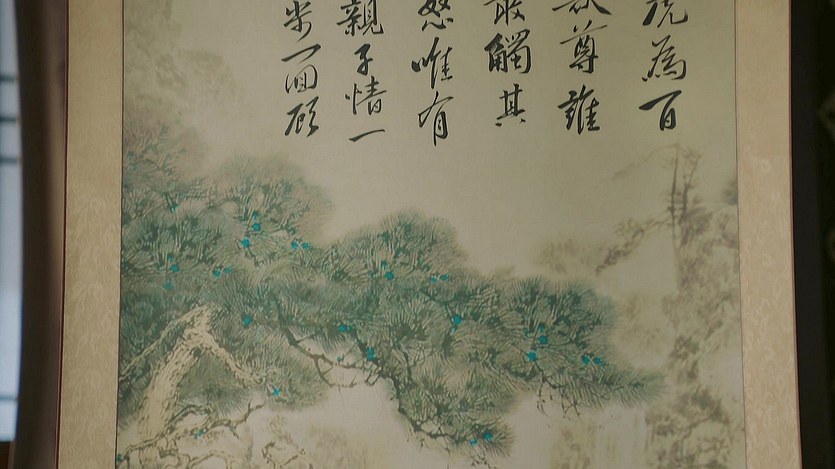 虎為百
獸尊誰
敢觸其
怒唯有
親子情一
步一回顧